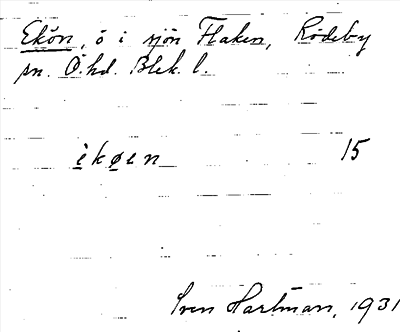 Ekön, ö i sjön Flaken, Rödeby
sn. Ö. hd. Blek. l.
ekøen 15
Sven Hartman, 1931